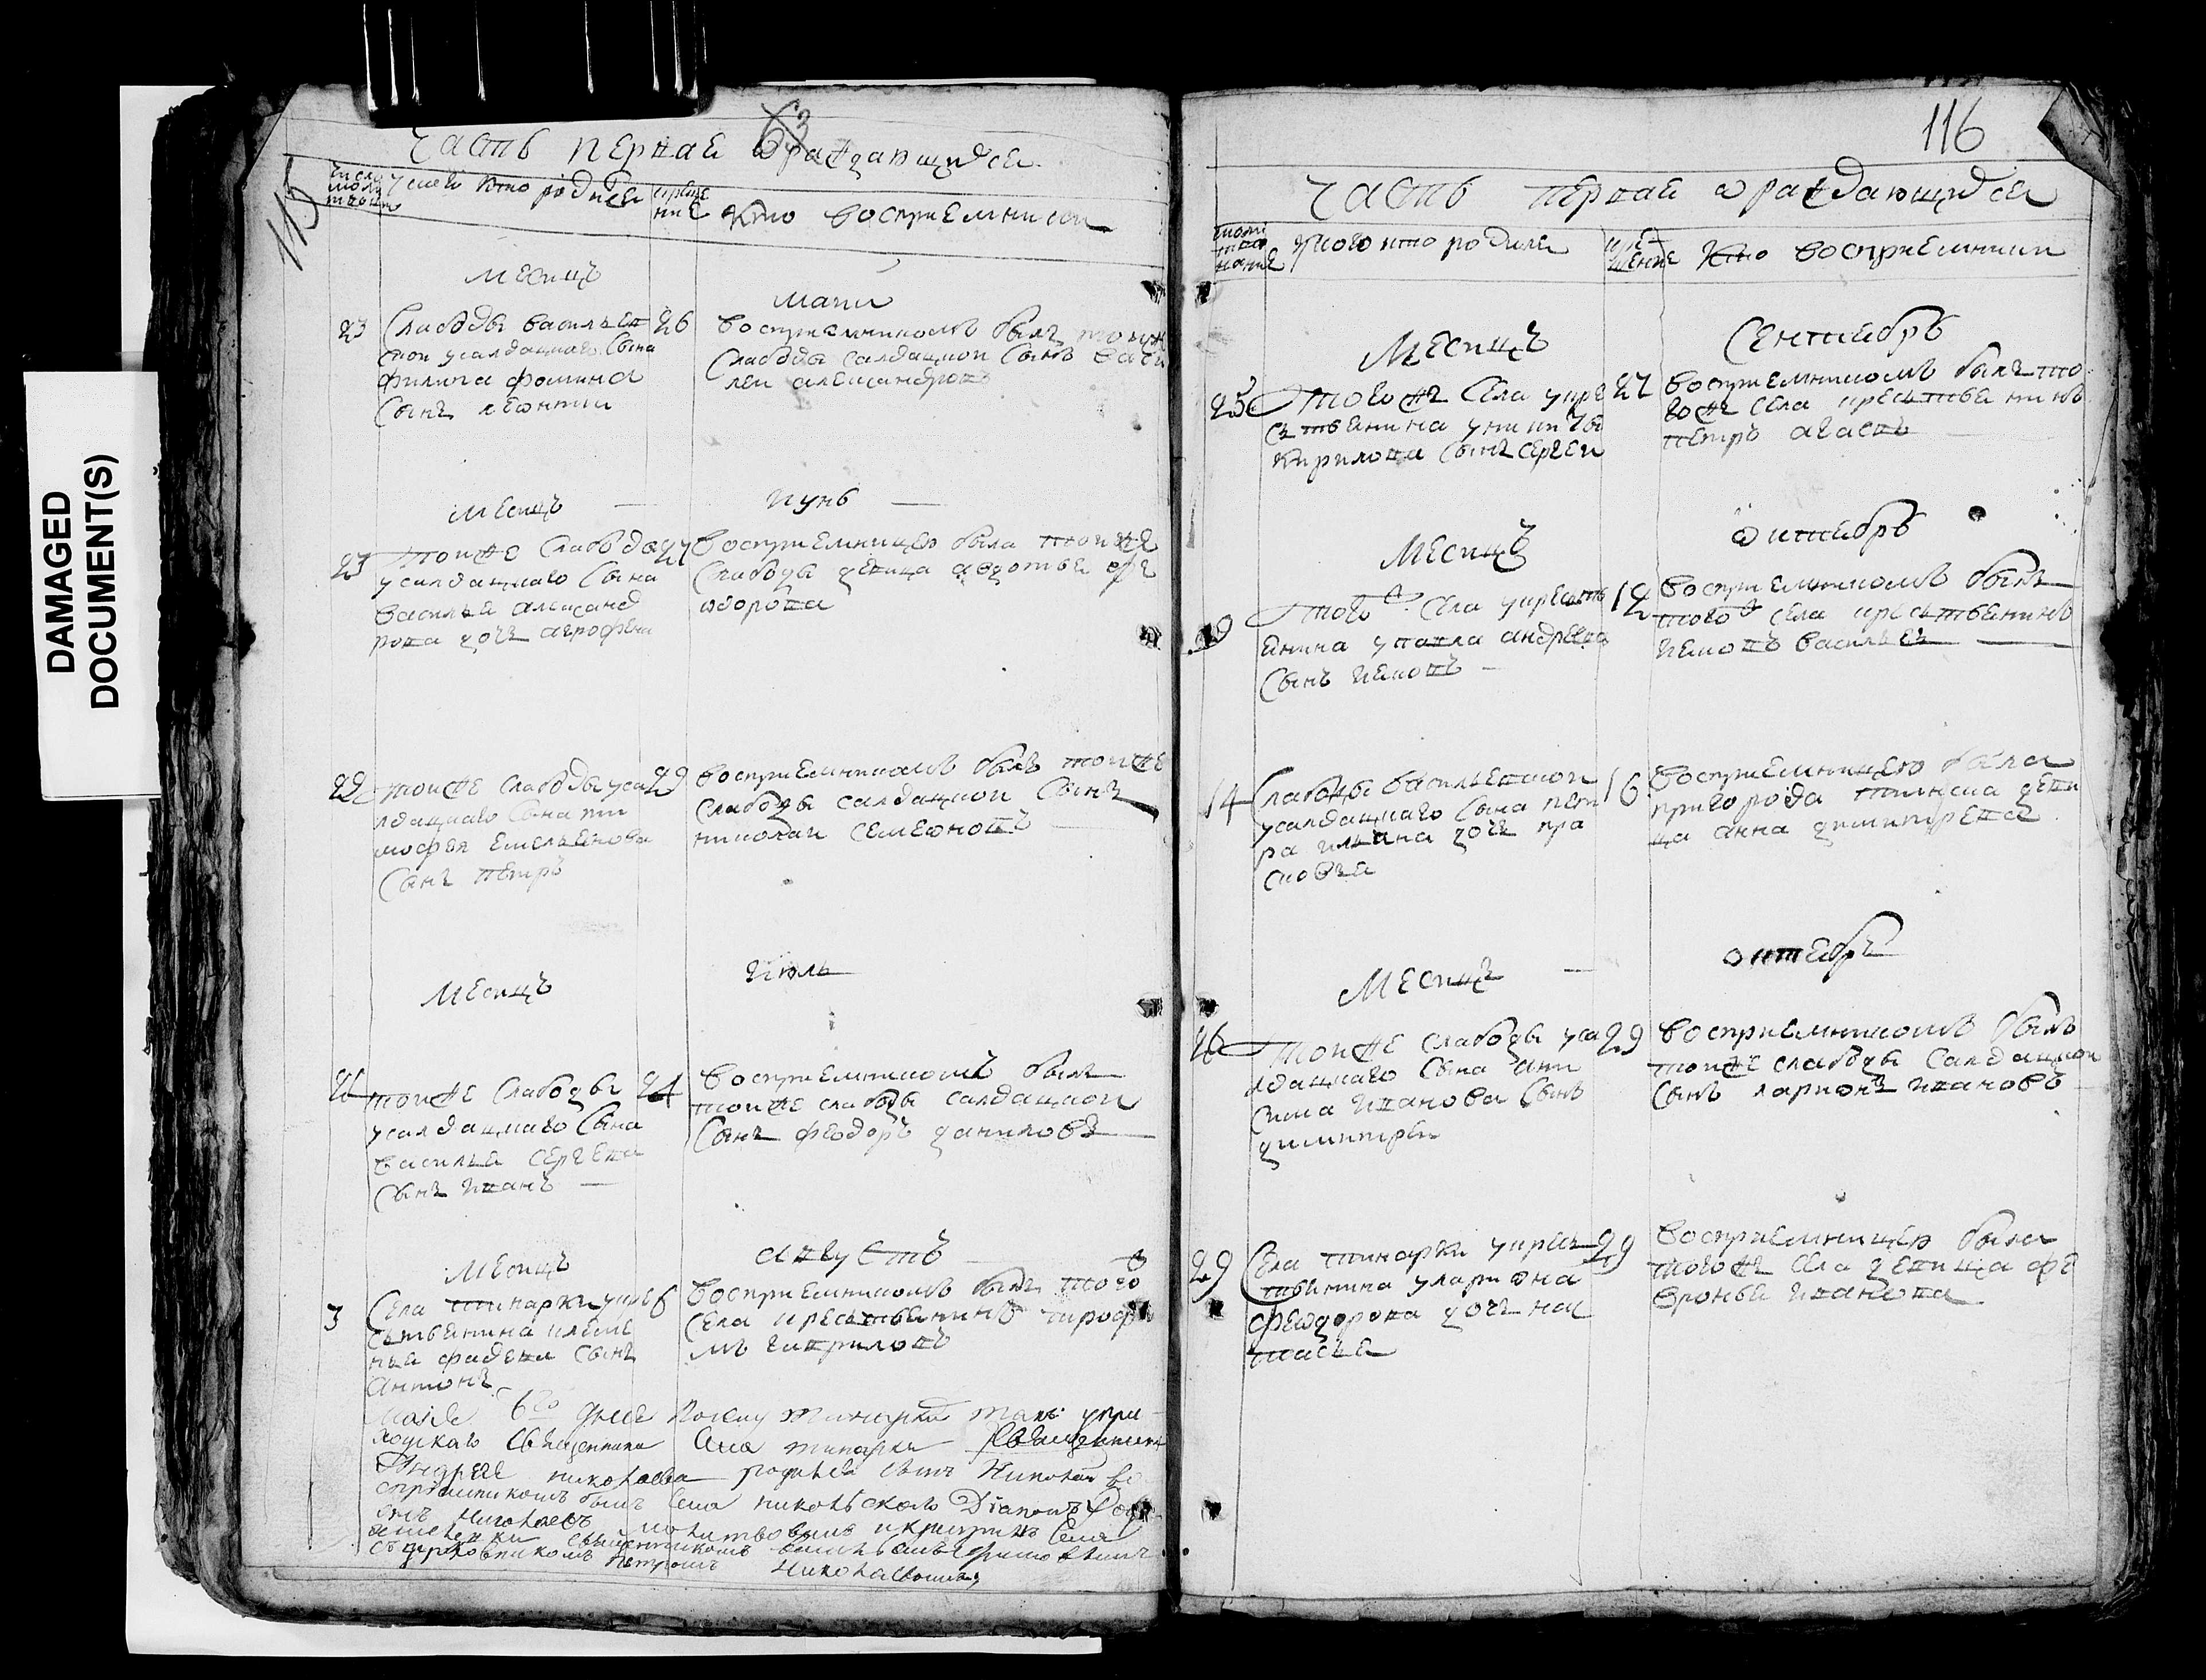 DAMAGED
DOCUMENT(S)
115
63
часть первая ѡ раждающихся
число молитвои
у ково кто родися
креще
ние
Кто восприемники
Месяць
маии
23
Слабоды васильев
скои усалдацкаго сына
филипа фомина
сынъ леонтии
26
восприемникомъ былъ тоиж
слабоды салдацкои сынъ васи
леи александровъ
Месяцъ
иунь
23
тоиже слабоды
усалдацкаго сына
василья александ
рова дочь агрофена
27
восприемницею была тоиже
слабоды девица авдотья фе
ѡдорова
22
тоиже слабоды уса
лдацкаго сына ти
мофея емельянова
сынъ петръ
29
восприемникомъ былъ тоиже
слабоды салдацкои сынъ
николаи семеѡновъ
Месяцъ
июль
21
тоиже слабоды
усалдацкаго сына
василья сергева
сынъ иванъ
24
восприемникомъ былъ
тоиже слабоды салдацкои
сынъ феодоръ даниловъ
Месяцъ
августъ
3
Села тинарки укре
стьянина клеме
нья фадева сынъ
антонъ
6
восприемникомъ былъ того ж
села крестьянинъ трофи
мъ гавриловъ
6го дня
села тинарки священника
Андрея николаева родился сынъ Николай во
сприемникомъ былъ села никольскаго Diаконъ
Николаевъ молитвовалъ и крестилъ села
священникомъ васильемъ
съ церковникомъ петромъ
Николаевымъ
116
часть первая ѡ раждающихся
моли
тво
вание
укого кто родися
кре
щение
Кто восприемники
Месяцъ
Сентябрь
25
тогоже села укре
стьянина уникиты
кирилова сынъ сергеи
27
восприемникомъ былъ то
гоже села крестьянинъ
петръ агаевъ
Месяцъ
ѡктябрь
9
того ж села укресть
янина упавла андреева
сынъ иековъ
12
восприемникомъ былъ
того ж села крестьянинъ
иековъ васильевъ
14
слабоды васильевскои
усалдацкаго сына пет
ра ильина дочь пра
сковья
16
восприемницею была
пригорода тиинска деви
ца анна димитрева
Месяцъ
октебрь
26
тоиже слабоды уса
лдацкаго сына ани
сима иванова сынъ
димитреи
29
восприемникомъ былъ
тоиже слабоды салдацкои
сынъ ларионъ ивановъ
29
Села тинарки укрес
тьянина улариона
феѡдорова дочь нас
тасья
29
восприемницею была
тогоже села девица фе
вронья иванова